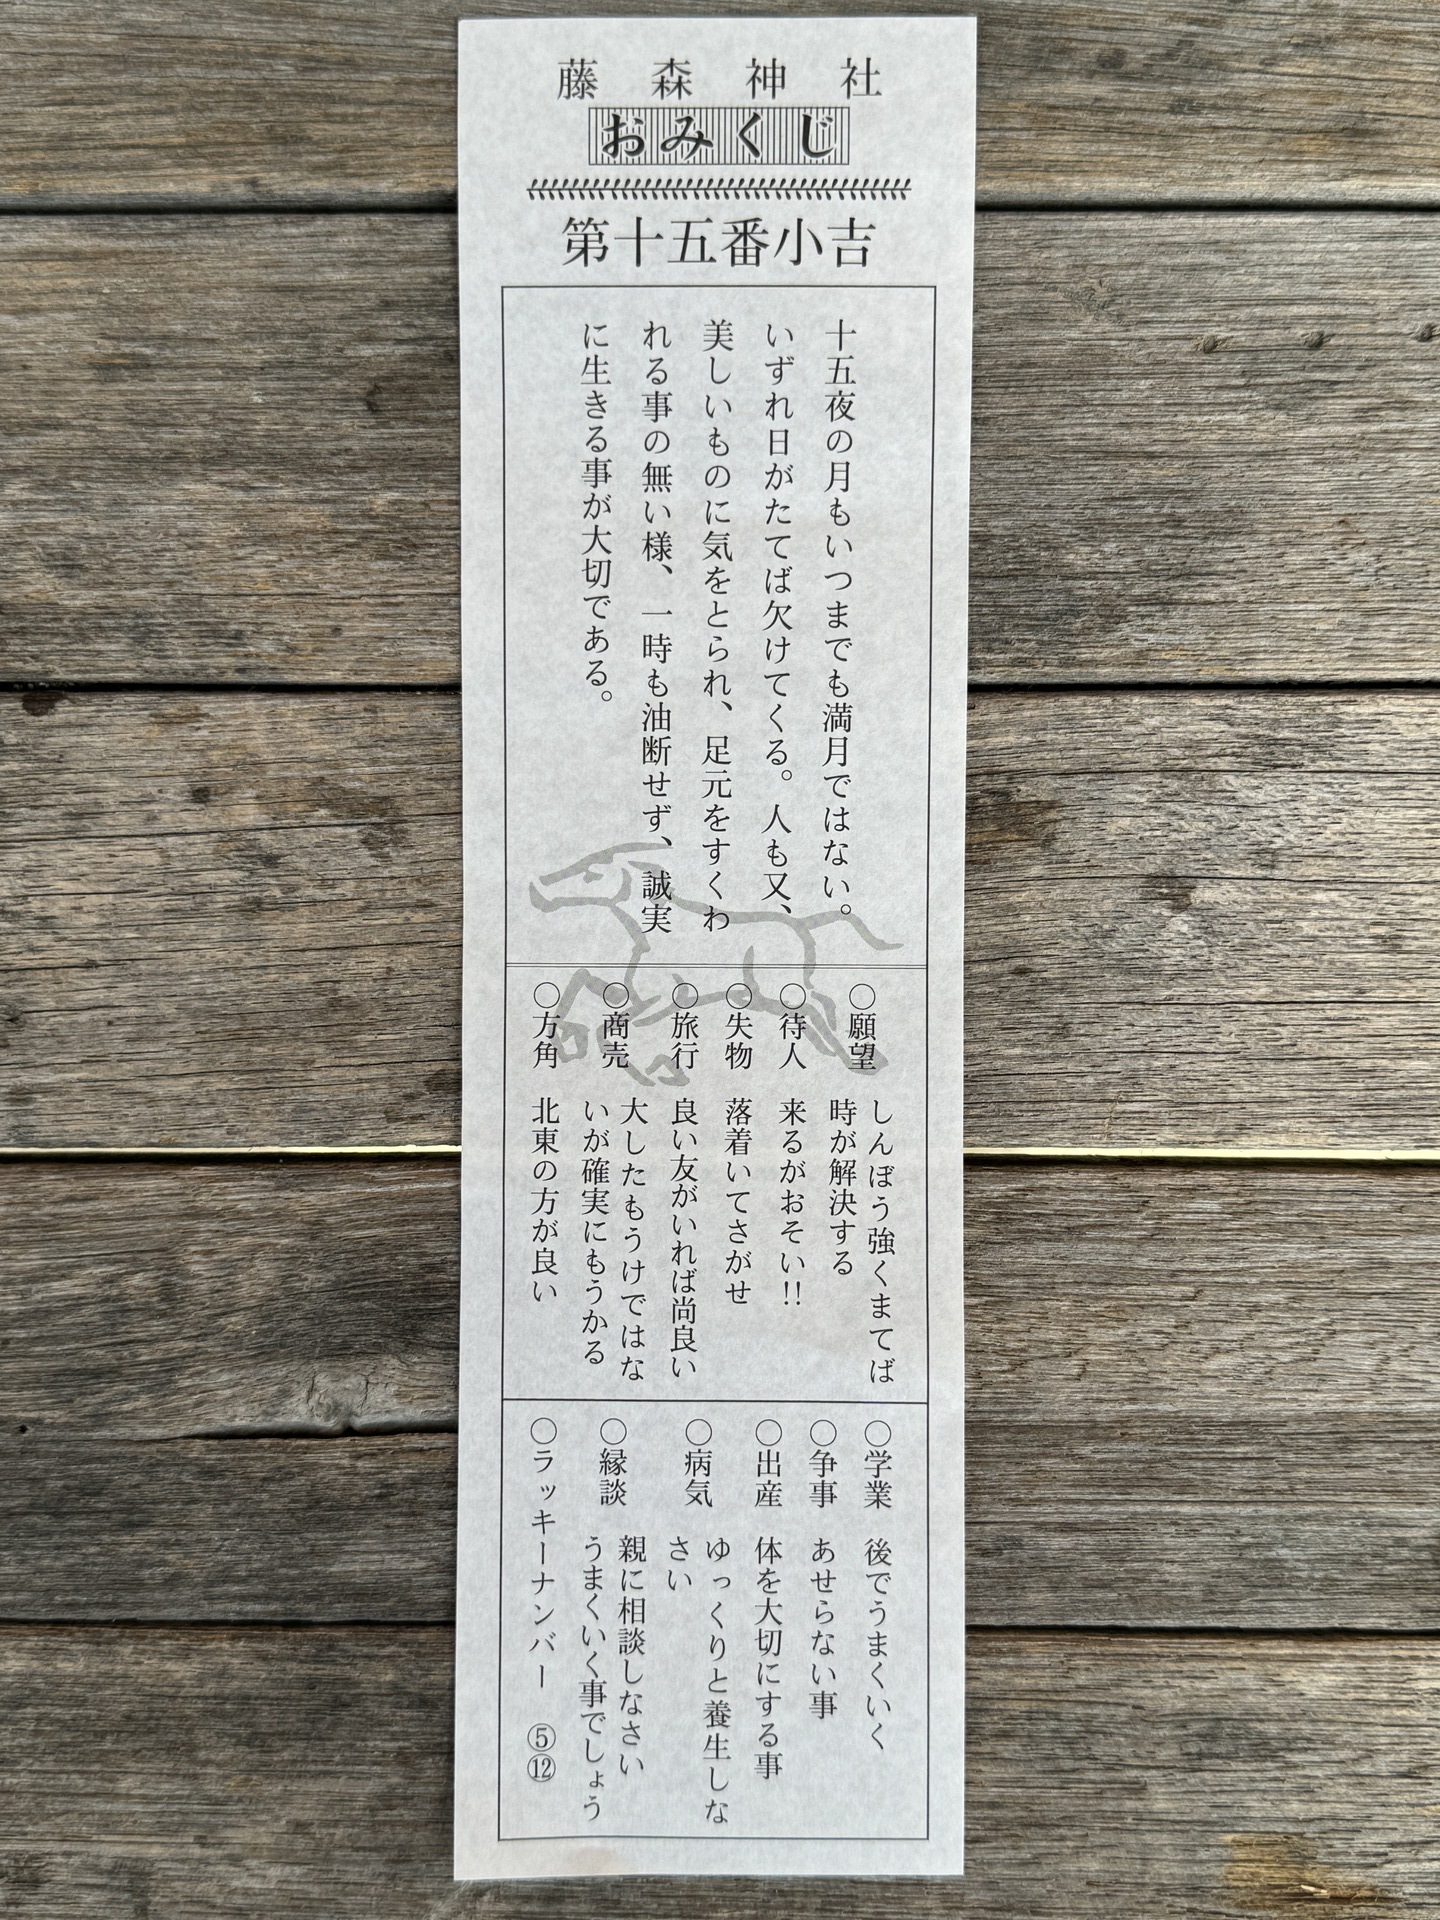 藤森神社
おみくじ
第十五番小吉
十五夜の月もいつまでも満月ではない。
いずれ日がたてば欠けてくる。人も又、
美しいものに気をとられ、足元をすくわ
れる事の無い様、一時も油断せず、誠実
に生きる事が大切である。
○願望 しんぼう強くまてば
時が解決する
○待人 来るがおそい!!
○失物 落着いてさがせ
○旅行 良い友がいれば尚良い
○商売 大したもうけではな
いが確実にもうかる
○方角 北東の方が良い
○学業 後でうまくいく
○争事 あせらない事
○出産 体を大切にする事
○病気 ゆっくりと養生しな
さい
○縁談 親に相談しなさい
うまくいく事でしょう
○ラッキーナンバー ⑤⑫